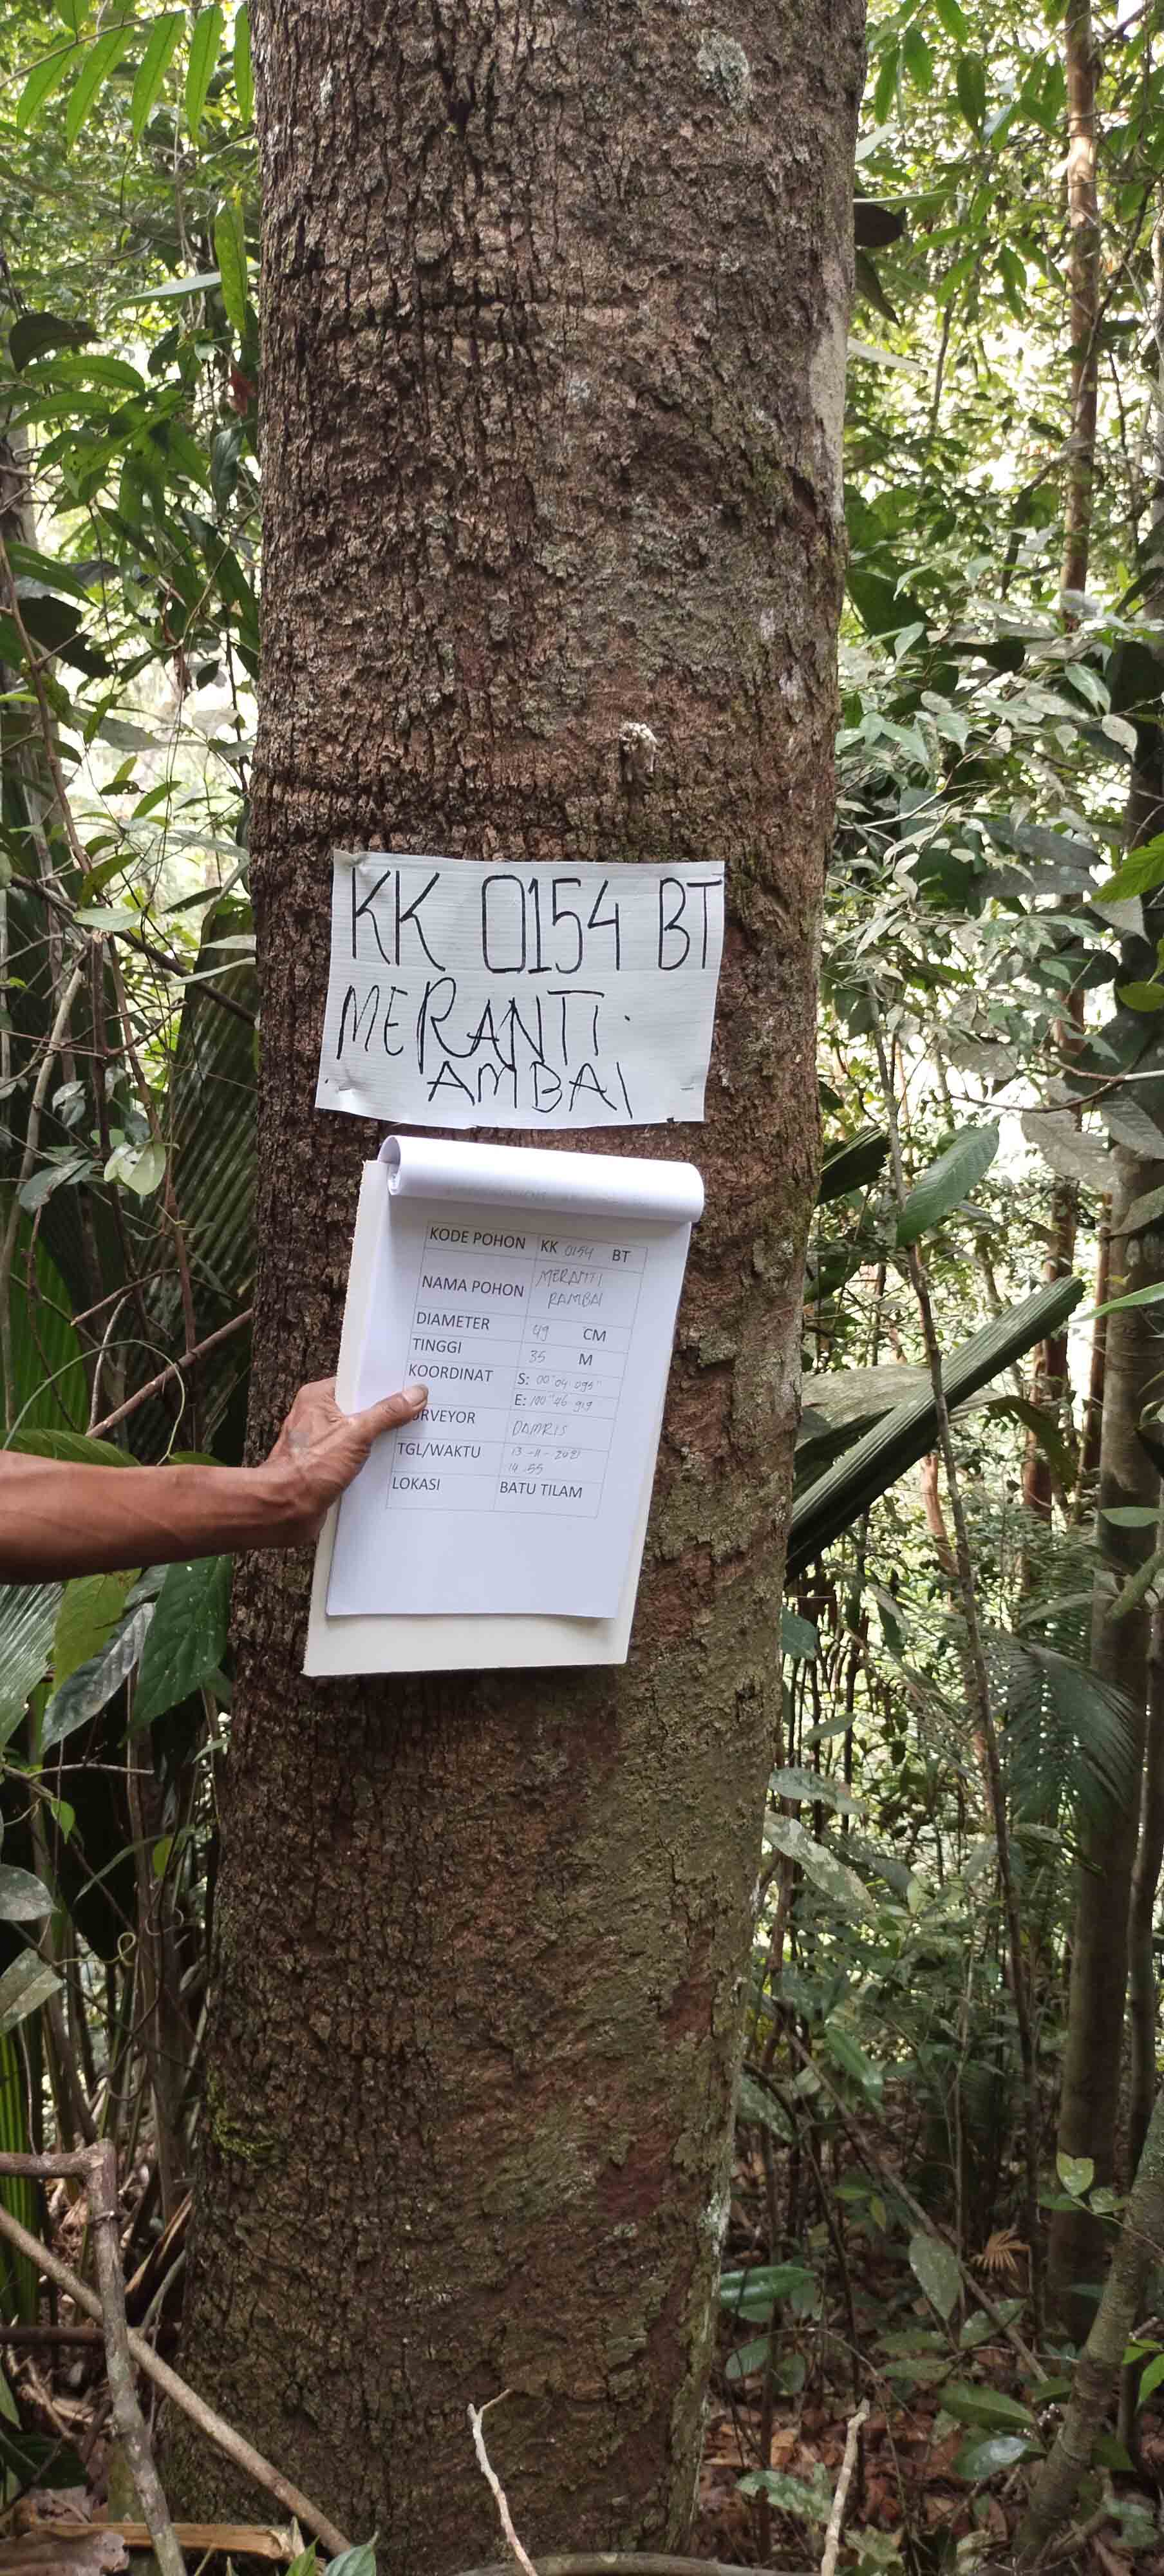 KK 0154 BT
MERANTI.
AMBAI
KODE POHON KK 0154 BT
NAMA POHON MERANTI
RAMBAI
DIAMETER 49 CM
TINGGI 35 M
KOORDINAT S: 00°04'095"
E: 100°46'
URVEYOR DAMRIS
TGL/WAKTU 13-11-2021
14.55
LOKASI BATU TILAM